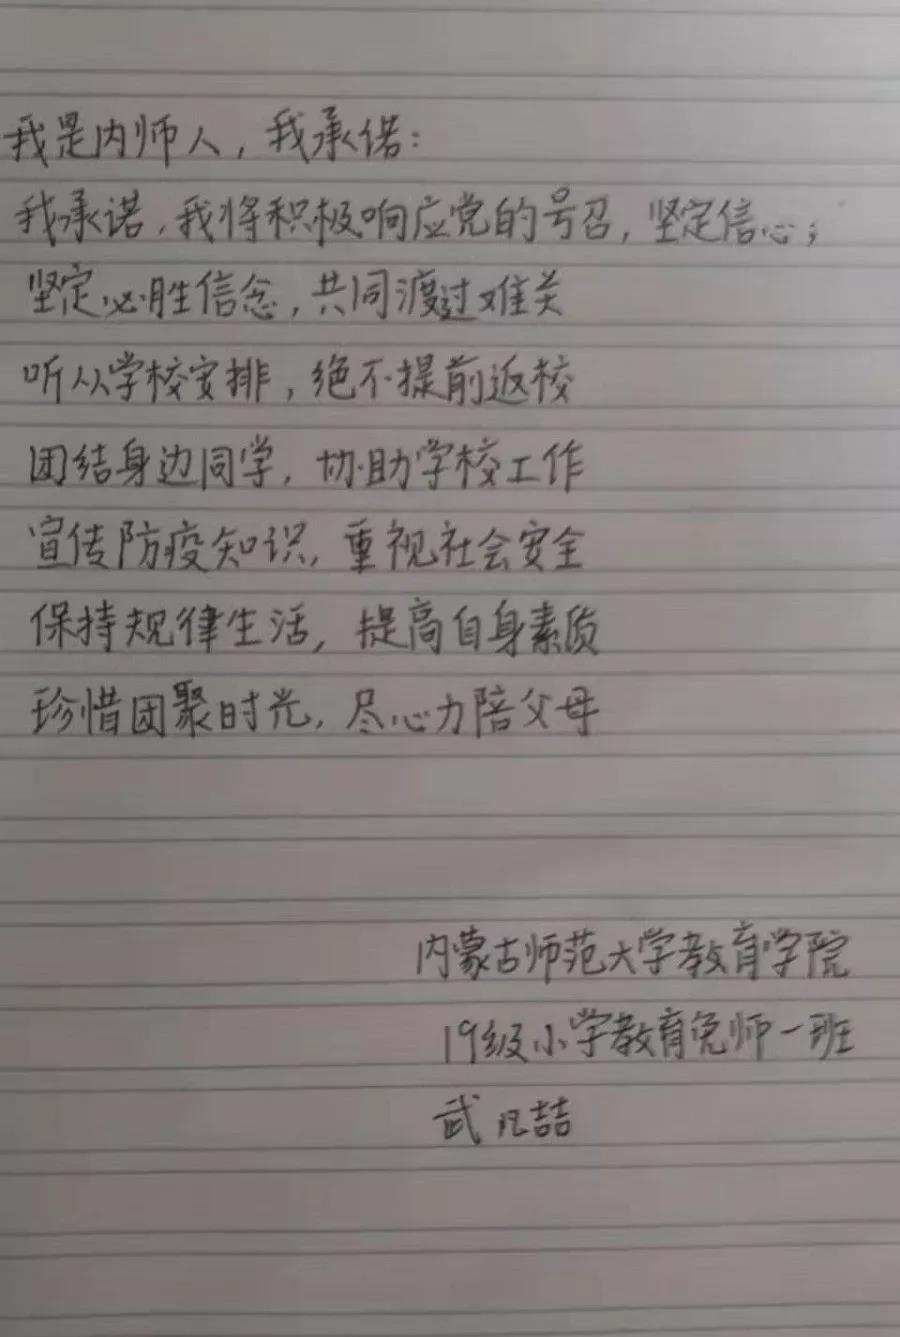 我是内师人，我承诺：
我承诺，我将积极响应党的号召，坚定信心；
坚定必胜信念，共同渡过难关
听从学校安排，绝不提前返校
团结身边同学，协助学校工作
宣传防疫知识，重视社会安全
保持规律生活，提高自身素质
珍惜团聚时光，尽心力陪父母
内蒙古师范大学教育学院
19级小学教育免师一班
武凡喆